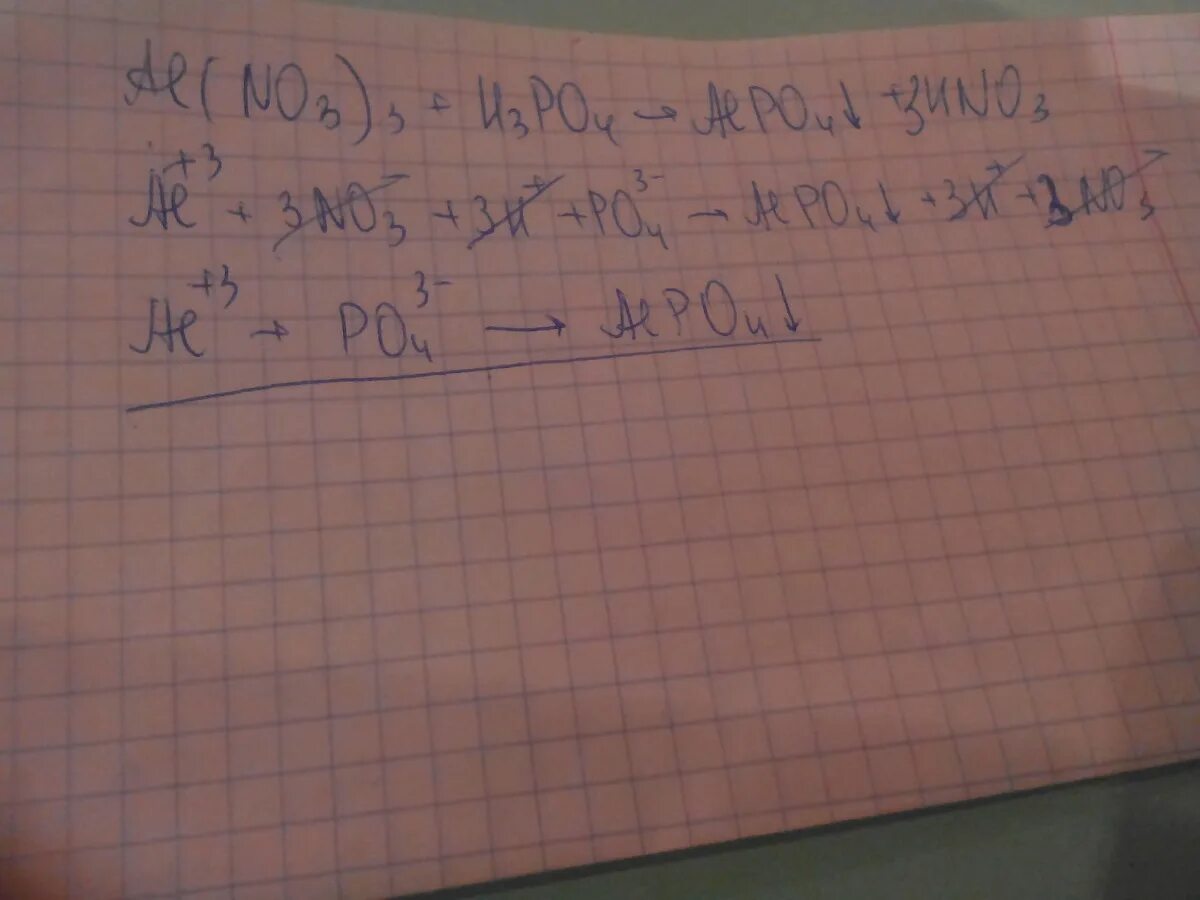 Al(NO₃)₃ + H₃PO₄ → AlPO₄↓ + 3HNO₃
Al⁺³ + 3NO₃⁻ + 3H⁺ + PO₄³⁻ → AlPO₄↓ + 3H⁺ + 3NO₃⁻
Al⁺³ + PO₄³⁻ → AlPO₄↓